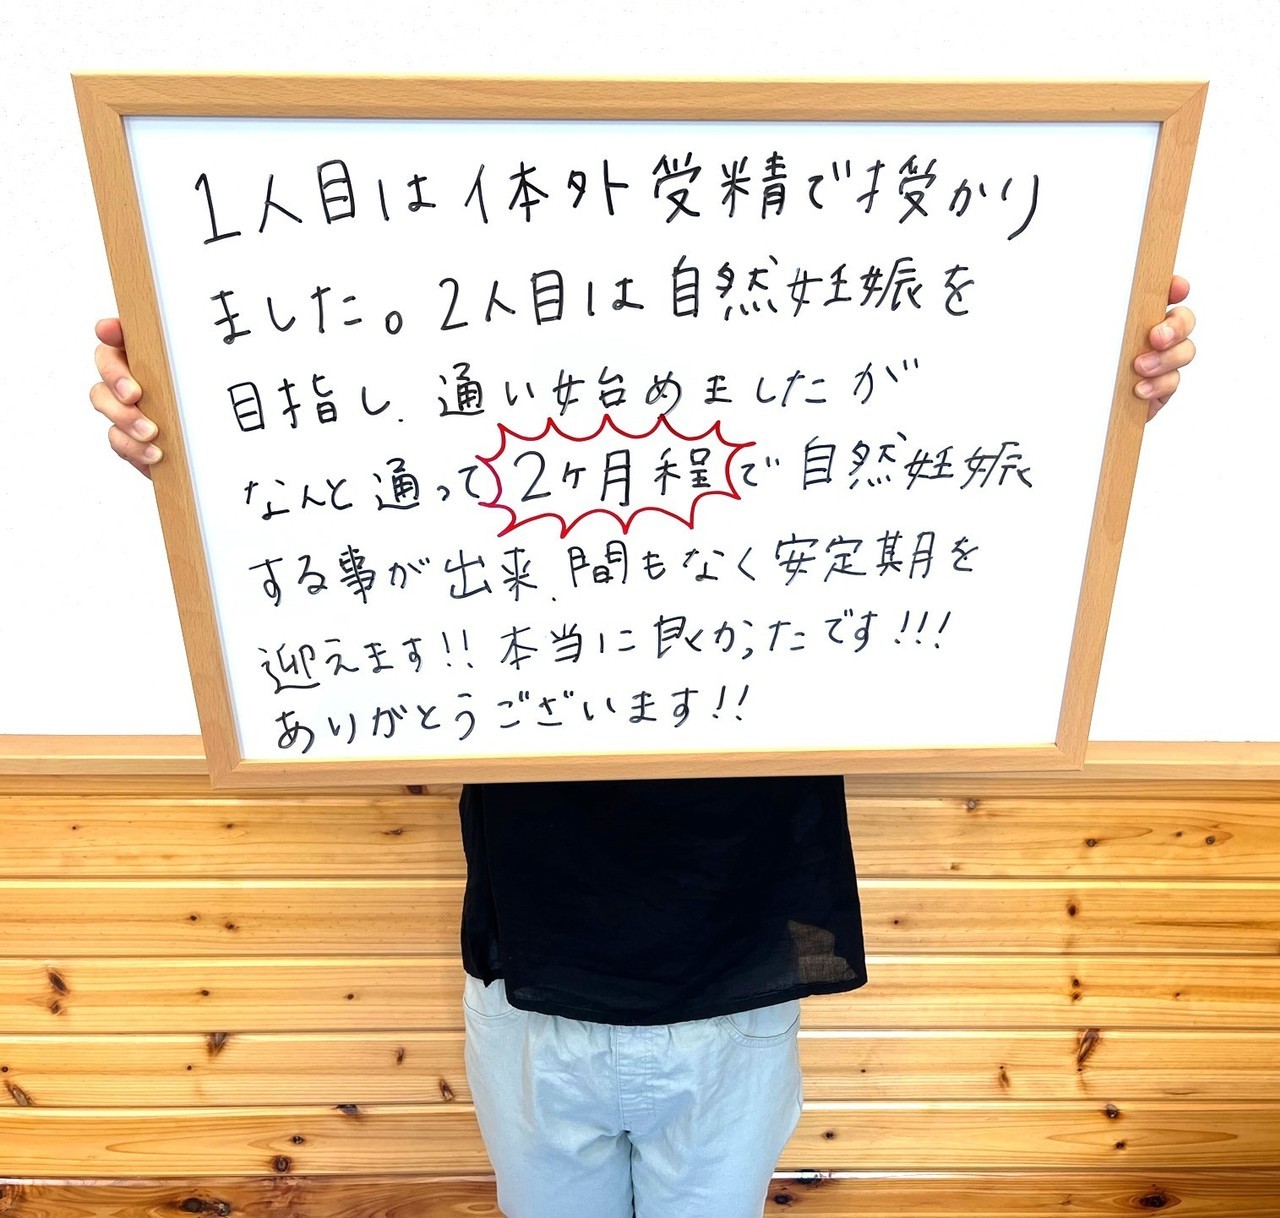 1人目は体外受精で授かり
ました。2人目は自然妊娠を
目指し、通い始めましたが
なんと通って2ヶ月程で自然妊娠
する事が出来、間もなく安定期を
迎えます!!本当に良かったです!!!
ありがとうございます!!